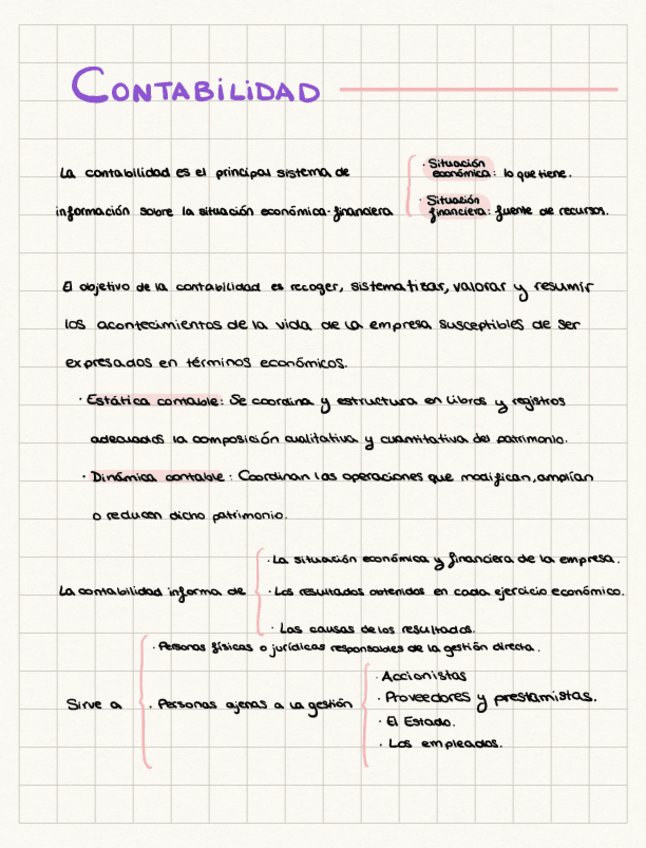 CONTABILIDAD
La contabilidad es el principal sistema de
información sobre la situación económica-financiera
· Situación
económica: lo que tiene.
· Situación
financiera: fuente de recursos.
El objetivo de la contabilidad es recoger, sistematizar, valorar y resumir
los acontecimientos de la vida de la empresa susceptibles de ser
expresados en términos económicos.
· Estática contable: Se coordina y estructura en libros y registros
adecuados la composición cualitativa y cuantitativa del patrimonio.
· Dinámica contable: Coordinan las operaciones que modifican, amplían
o reducen dicho patrimonio.
La contabilidad informa de
· La situación económica y financiera de la empresa.
· Los resultados obtenidos en cada ejercicio económico.
· Las causas de los resultados.
Sirve a
· Personas físicas o jurídicas responsables de la gestión directa.
· Personas ajenas a la gestión
· Accionistas
· Proveedores y prestamistas.
· El Estado.
· Los empleados.